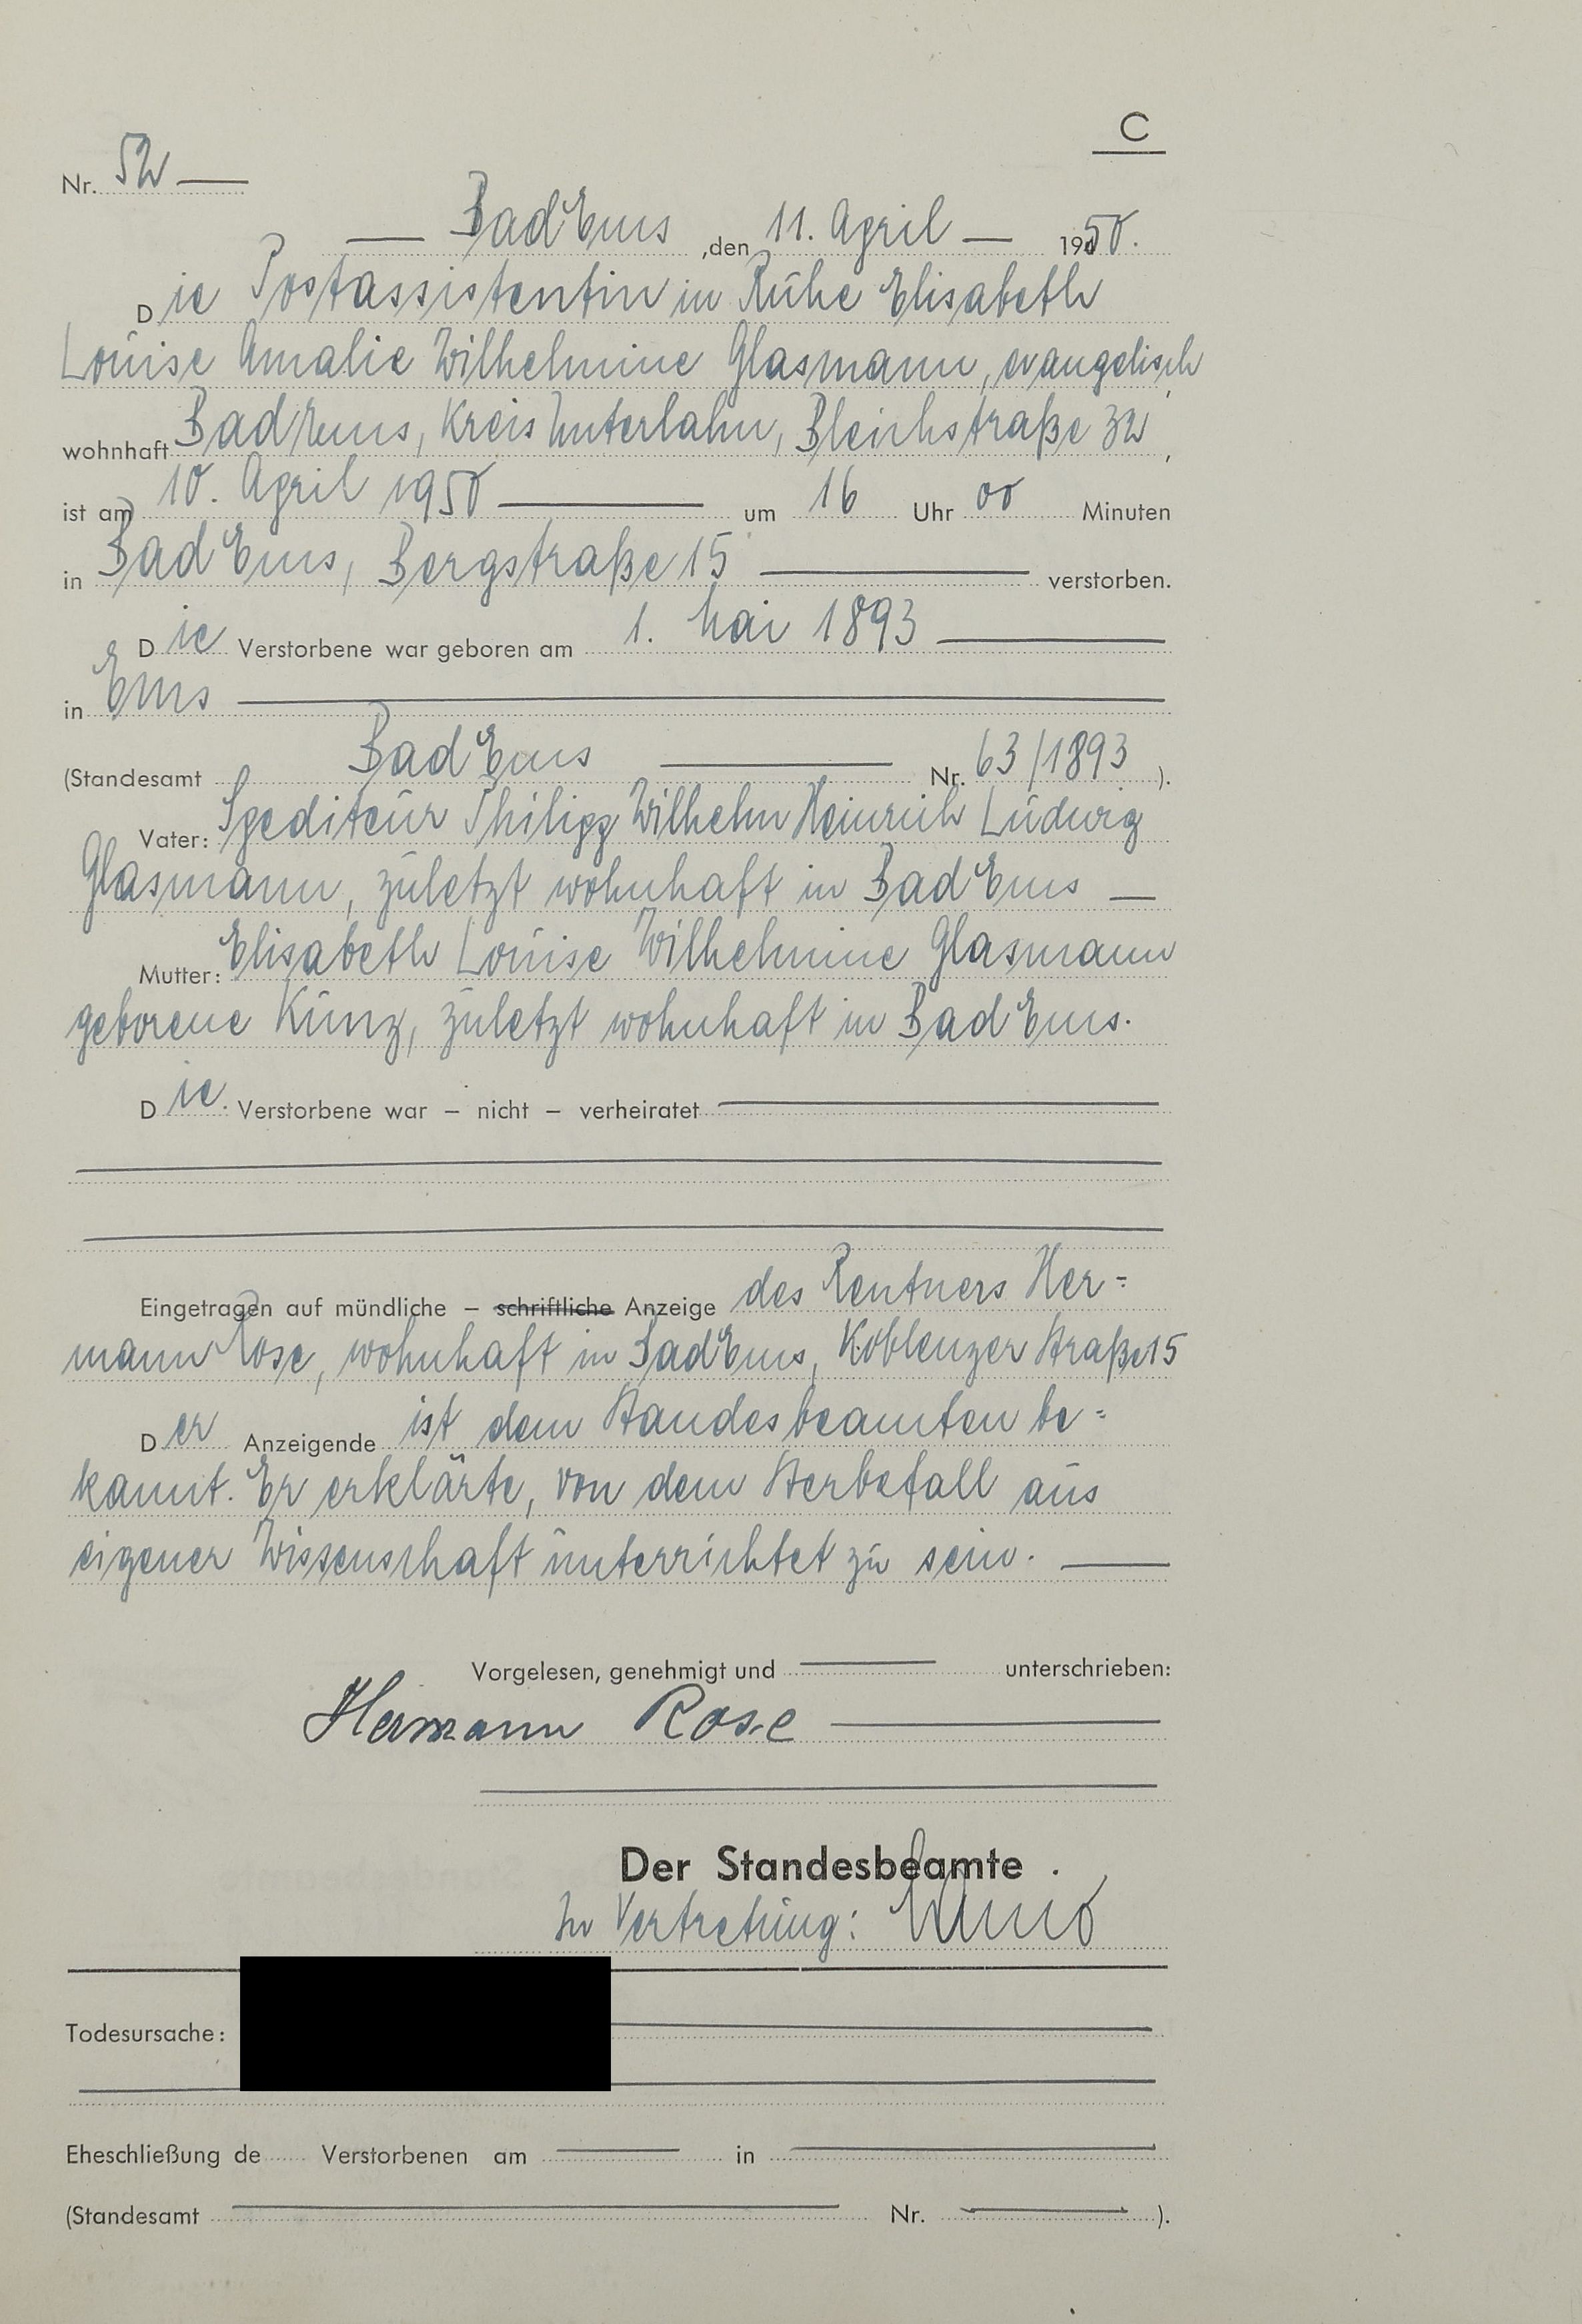 C
Nr. 52
Bad Ems, den 11. April 1950.
Die Postassistentin in Ruhe Elisabeth
Louise Amalie Wilhelmine Glasmann, evangelisch,
wohnhaft Bad Ems, Kreis Unterlahn, Bleichstraße 32,
ist am 10. April 1950 um 16 Uhr 00 Minuten
in Bad Ems, Bergstraße 15 verstorben.
Die Verstorbene war geboren am 1. Mai 1893
in Ems
(Standesamt Bad Ems Nr. 63/1893).
Vater: Spediteur Philipp Wilhelm Heinrich Ludwig
Glasmann, zuletzt wohnhaft in Bad Ems —
Mutter: Elisabeth Louise Wilhelmine Glasmann
geborene Kunz, zuletzt wohnhaft in Bad Ems.
Die Verstorbene war – nicht – verheiratet
Eingetragen auf mündliche – schriftliche Anzeige des Rentners Her=
mann Rose, wohnhaft in Bad Ems, Koblenzer Straße 15
Der Anzeigende ist dem Standesbeamten be=
kannt. Er erklärte, von dem Sterbefall aus
eigener Wissenschaft unterrichtet zu sein.
Vorgelesen, genehmigt und unterschrieben:
Hermann Rose
Der Standesbeamte
In Vertretung:
Todesursache:
Eheschließung de Verstorbenen am in
(Standesamt Nr. ).